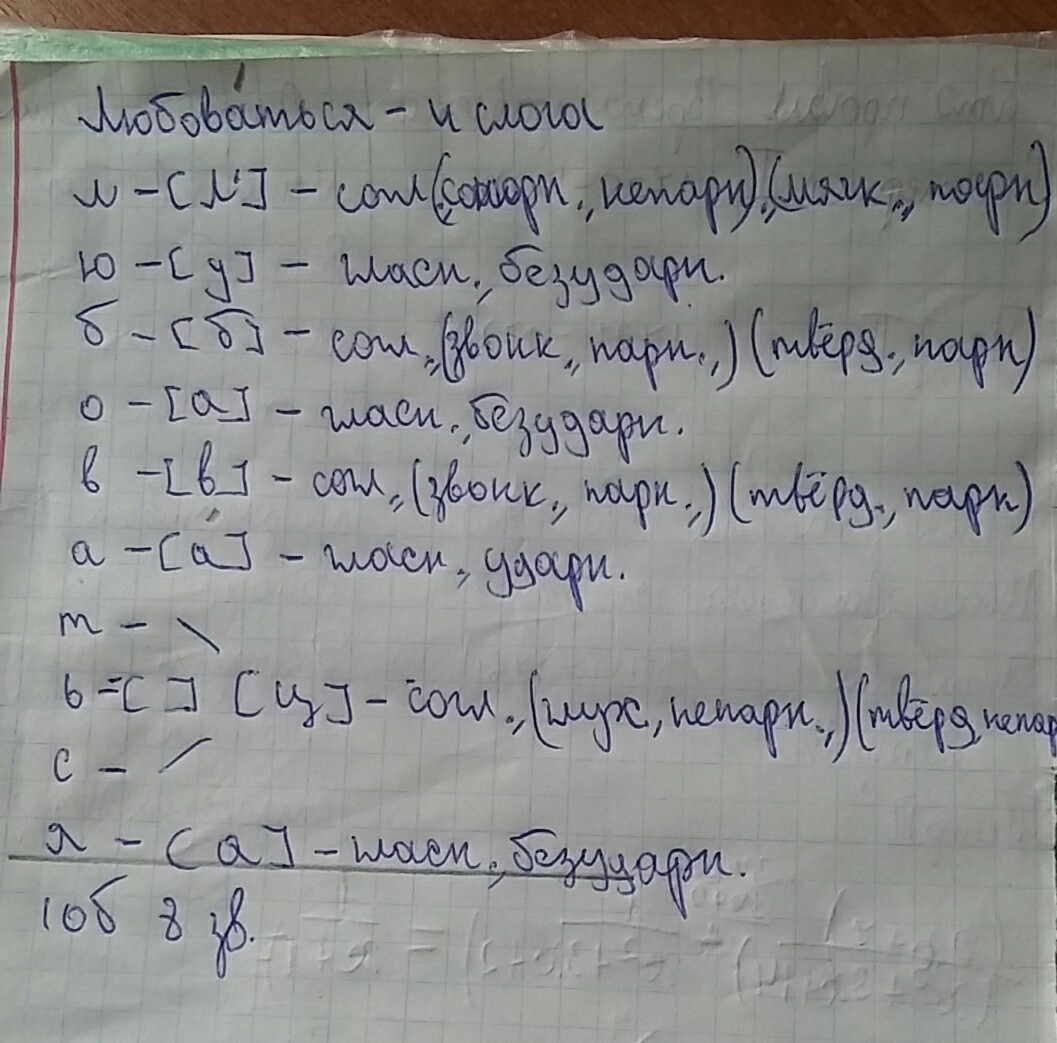 Любова́ться – 4 слога
л – [л'] – согл., (сонорн., непарн), (мягк., парн)
ю – [у] – гласн., безударн.
б – [б] – согл., (звонк., парн.,) (твёрд., парн)
о – [а] – гласн., безударн.
в – [в] – согл., (звонк., парн.,) (твёрд., парн)
а – [а́] – гласн., ударн.
т – \
ь = [ ] [ц] – согл., (глух, непарн.,) (твёрд, непар
с – /
я – [а] – гласн., безударн.
10б 8 зв.